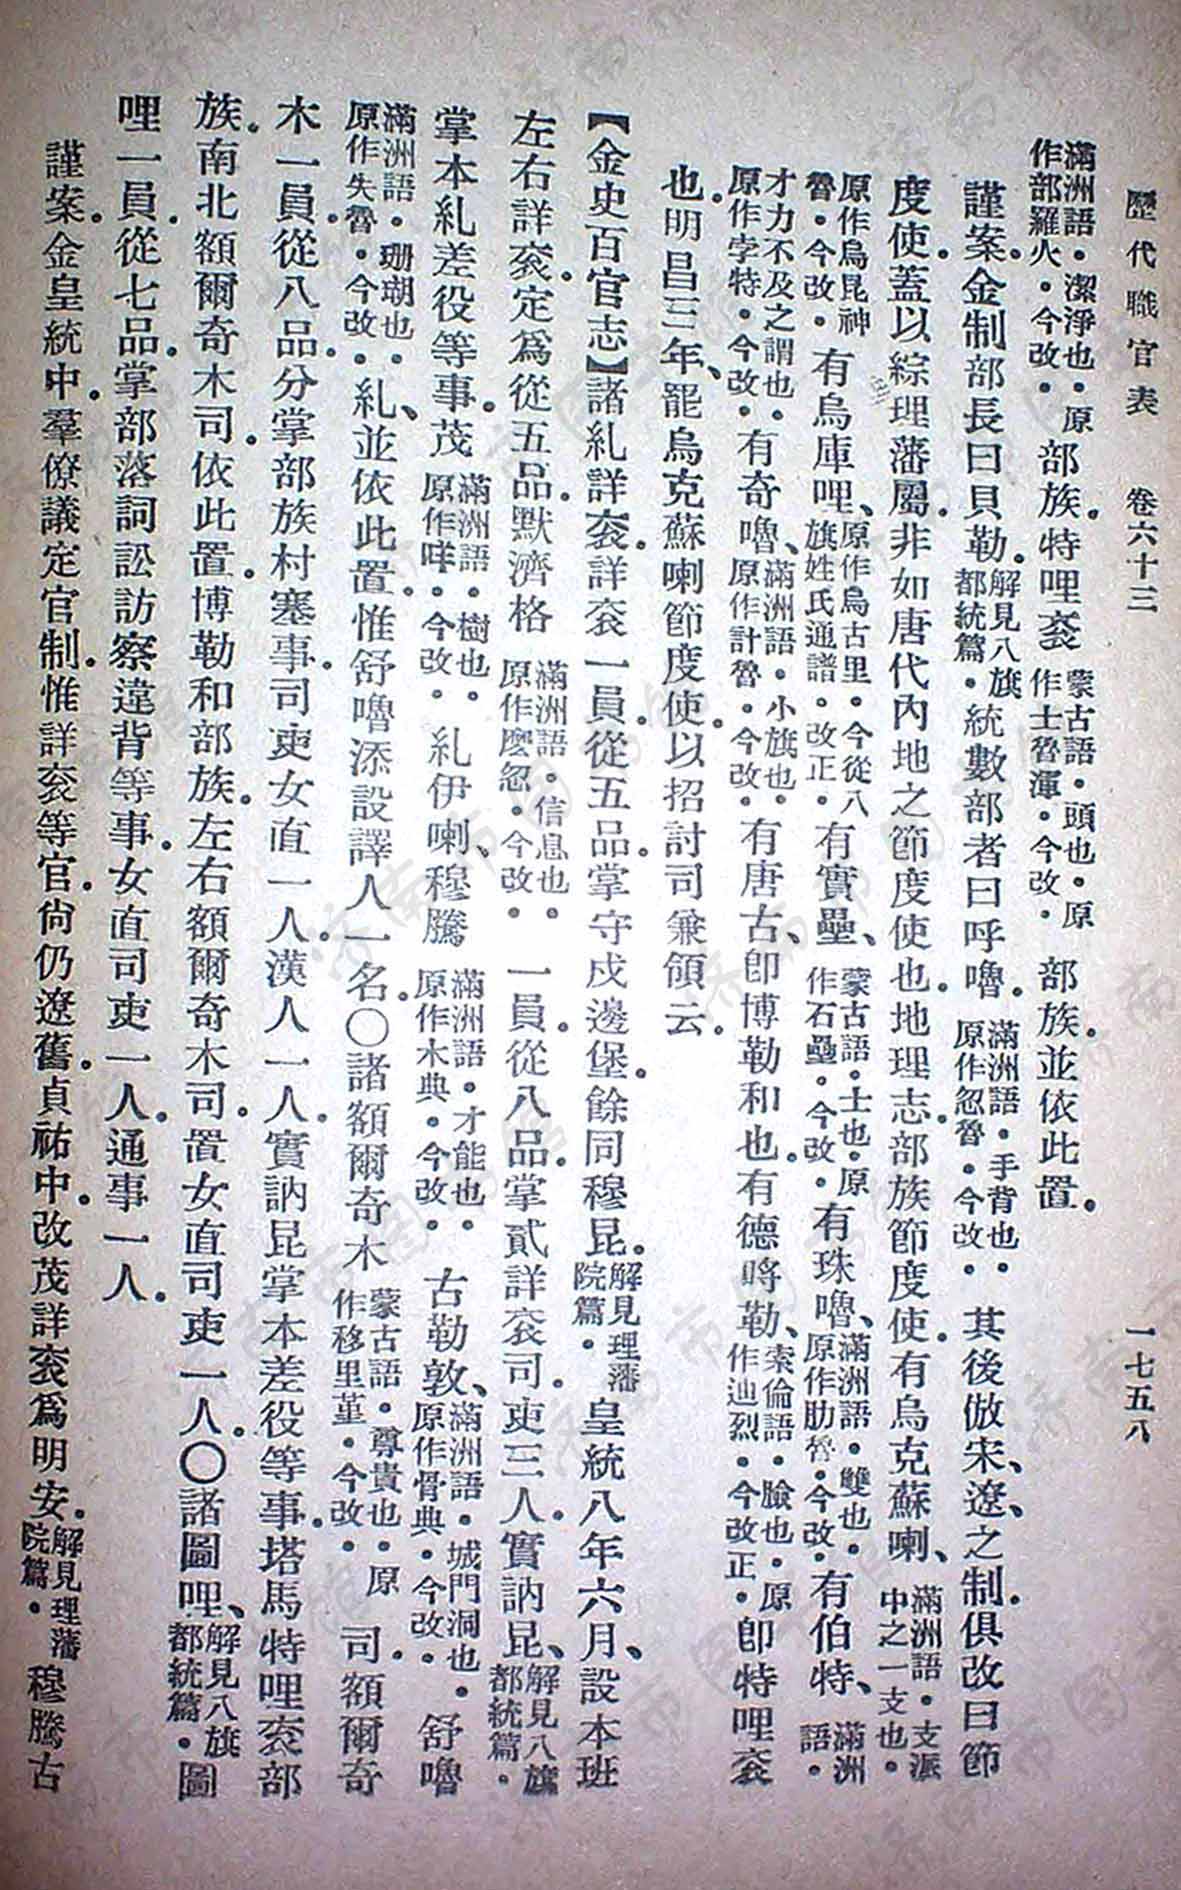 歷代職官表　卷六十三　一七五八
滿洲語・潔淨也・原作部羅火・今改・部族。特哩袞蒙古語・頭也・原作士魯渾・今改・部族。並依此置。
謹案。金制部長曰貝勒。解見八旗都統篇・統數部者曰呼嚕。滿洲語・手背也・原作忽魯・今改・其後倣宋、遼之制。俱改曰節
度使。蓋以綜理藩屬。非如唐代內地之節度使也。地理志。部族節度使。有烏克蘇喇、滿洲語・支派中之一支也・
原作烏昆神魯・今改・有烏庫哩、原作烏古里・今從八旗姓氏通譜・改正・有實壘、蒙古語・士也・原作石壘・今改・有珠嚕、滿洲語・雙也・原作肋魯・今改・有伯特、滿洲語・
才力不及之謂也・原作孛特・今改・有奇嚕、滿洲語・小旗也・原作計魯・今改・有唐古、卽博勒和也。有德哷勒、索倫語・臉也・原作迪烈・今改正・卽特哩袞
也。明昌三年、罷烏克蘇喇節度使。以招討司兼領云。
【金史百官志】諸糺詳袞。詳袞一員。從五品。掌守戍邊堡。餘同穆昆。解見理藩院篇・皇統八年六月、設本班
左右詳袞。定爲從五品。默濟格滿洲語・信息也・原作麽忽・今改・一員。從八品。掌貳詳袞。司吏三人。實訥昆、解見八旗都統篇・
掌本糺差役等事。茂滿洲語・樹也・原作咩・今改・糺伊喇、穆騰滿洲語・才能也・原作木典・今改・古勒敦、滿洲語・城門洞也・原作骨典・今改・舒嚕
滿洲語・珊瑚也・原作失魯・今改・糺、並依此置。惟舒嚕添設譯人一名。〇諸額爾奇木蒙古語・尊貴也・原作移里堇・今改・司。額爾奇
木一員。從八品。分掌部族村塞事。司吏女直一人漢人一人。實訥昆掌本差役等事。塔馬特哩袞部
族。南北額爾奇木司。依此置。博勒和部族。左右額爾奇木司。置女直司吏一人。〇諸圖哩、解見八旗都統篇・圖
哩一員。從七品。掌部落詞訟訪察違背等事。女直司吏一人。通事一人。
謹案。金皇統中。羣僚議定官制。惟詳袞等官。尙仍遼舊。貞祐中。改茂詳袞爲明安。解見理藩院篇・穆騰古